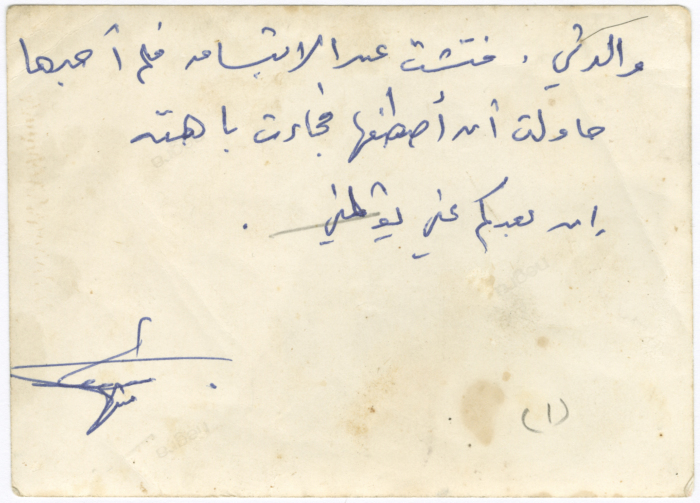 والدتي . فتشت عن الابتسامه فلم أجدها
حاولت أن أصطنعها فجاءت باهته
إن بعدكم عني يؤلمني .
(١)